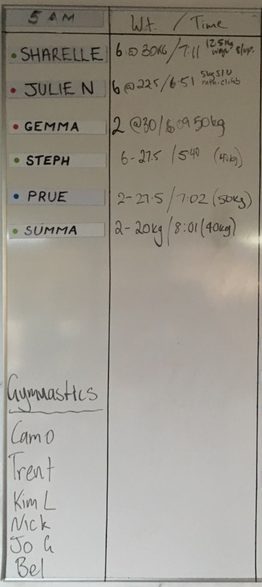 5 AM Wt. / Time
SHARELLE 6 @ 30KG / 7:11 12.5kg
JULIE N 6 @ 22.5 / 6:51 5kg
GEMMA 2 @30 / 6:09 50kg
STEPH 6-27.5 / 5:40 (40kg)
PRUE 2-27.5 / 7:02 (50kg)
SUMMA 2-20kg / 8:01 (40kg)
Gymnastics
Camo
Trent
Kim L
Nick
Jo G
Bel